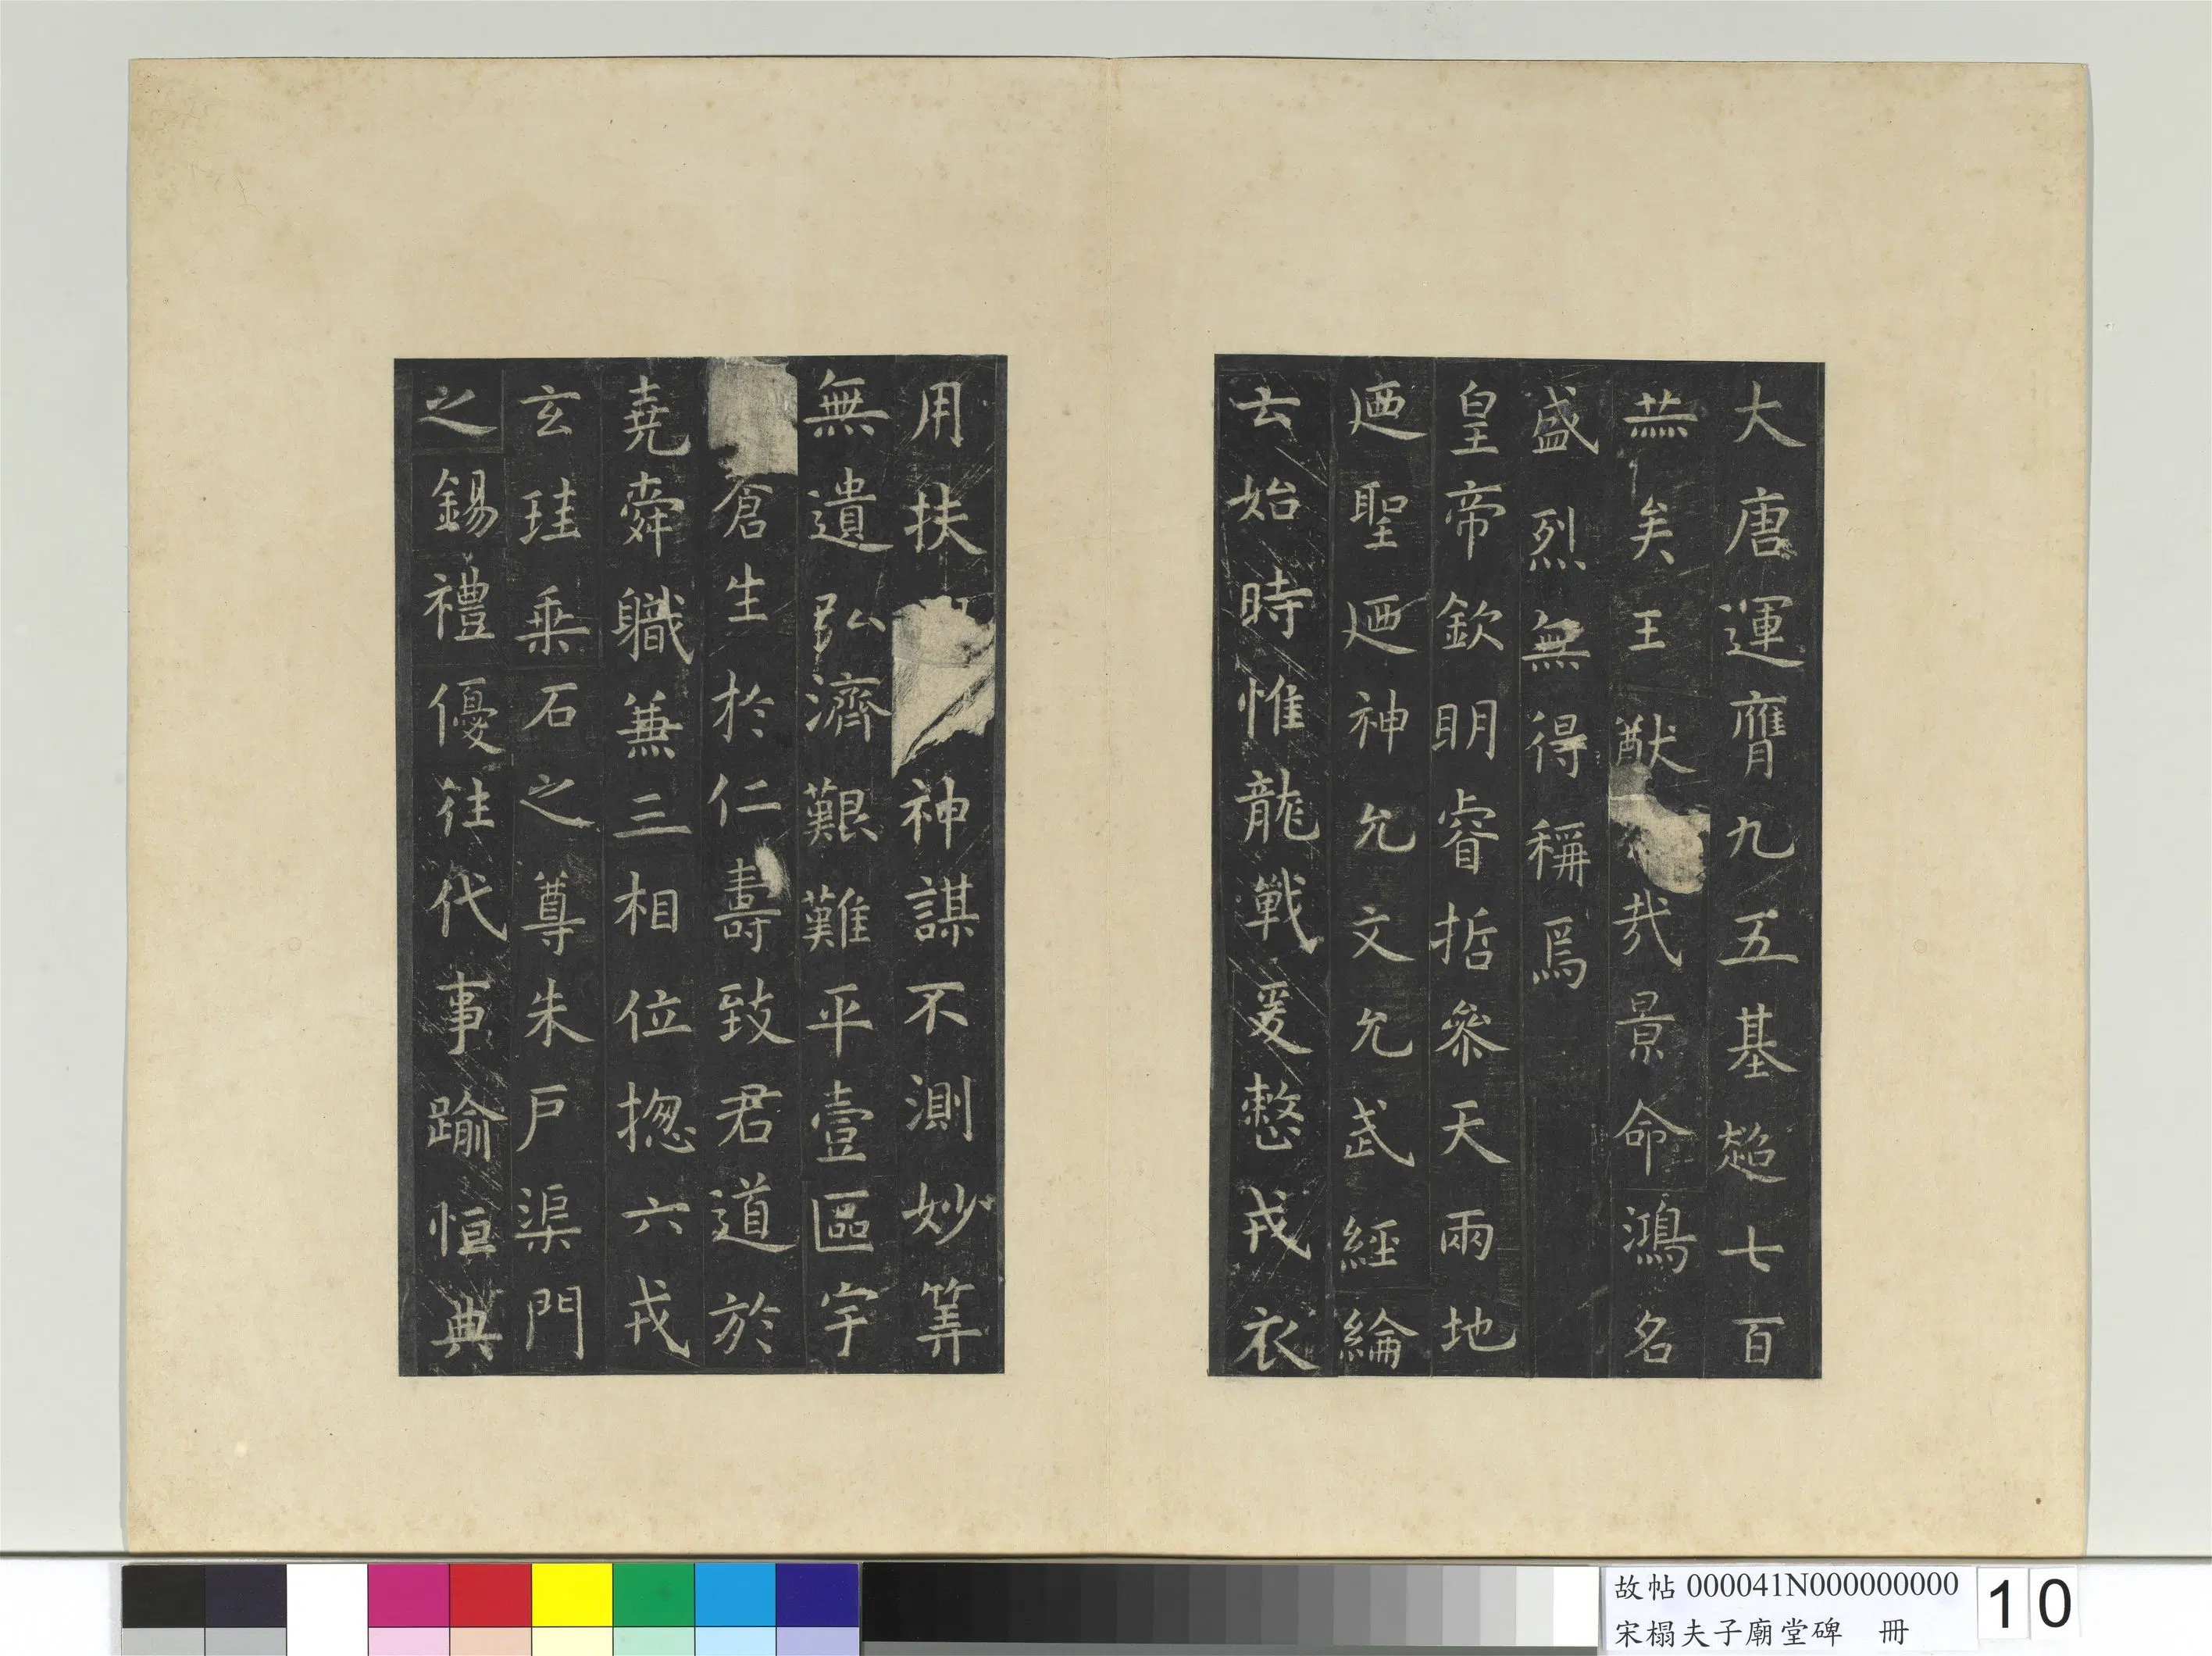 大唐運膺九五基超七百
燕矣王猷哉景命鴻名
盛烈無得稱焉
皇帝欽明睿哲參天兩地
迺聖迺神允文允武經綸
云始時惟龍戰爰整戎衣
用扶神謀不測妙筭
無遺弘濟艱難平壹區宇
倉生於仁壽致君道於
堯舜職兼三相位揔六戎
玄珪乗石之尊朱戶渠門
之錫禮優往代事踰恒典
故帖 000041N000000000
宋榻夫子廟堂碑 冊
10